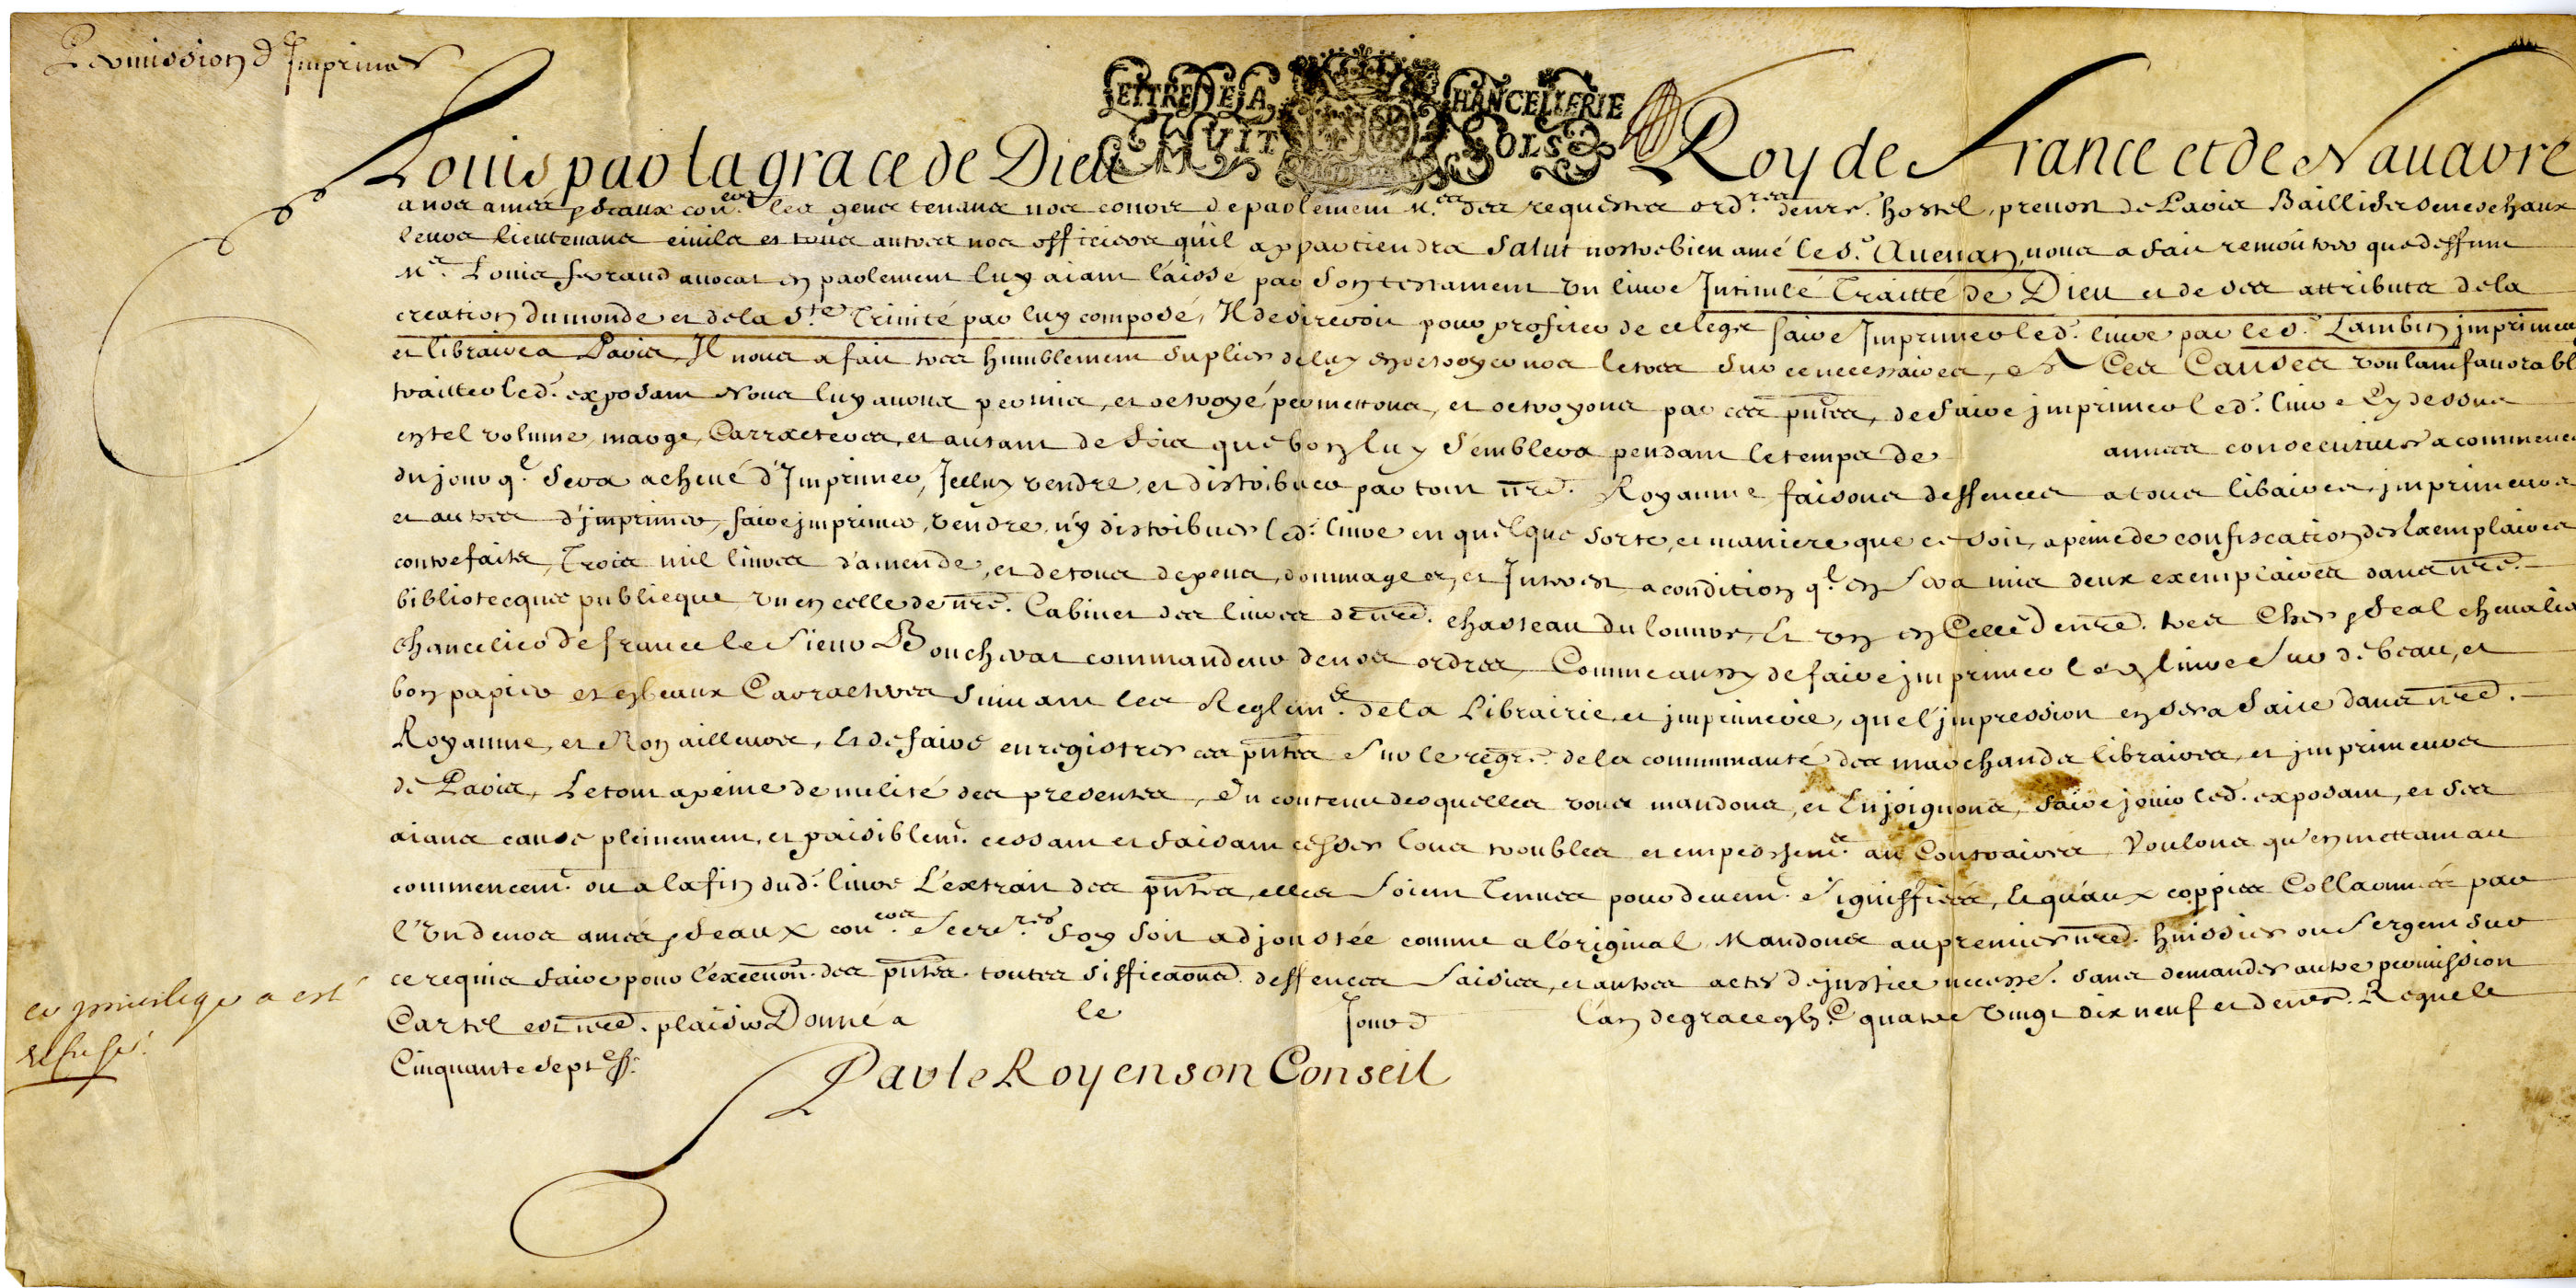 Permission d'Imprimer
LETTRE DE LA CHANCELLERIE
HUIT SOLS
Louis par la grace de Dieu Roy de France et de Nauarre
a nos amez & feaux con.ers les gens tenans nos cours de parlement M.es des requestes ord.res de nre. hostel, preuost de Paris Baillifs seneschaux
leurs lieutenans ciuils et tous autres nos officiers qu'il appartiendra Salut nostre bien amé le S.r Auenan, nous a fait remoutrer que deffunt
M.e Louis ferrand auocat en parlement luy aiant laissé par son testament un liure Intitulé Traitté de Dieu et de ses attributs de la
creation du monde et de la S.te Trinité par luy composé, Il desireroit pour profiter de ce legs faire Imprimer led. liure par le S.r Lambin imprimeur
et libraire a Paris, Il nous a fait tres humblement suplier de luy en octroyer nos letres sur ce necessaires, A Ces Causes voulant fauorabl
traitter led. exposant Nous luy auons permis, et octroyé, permettons, et octroyons par ces pntes, de faire imprimer led. liure Cy dessus
en tel volume, marge, Carracteres, et autant de fois que bon luy semblera pendant le temps de annees consecutiues a commencer
du jour q.l sera acheué d'Imprimer, Icelluy vendre, et distribuer par tout nre. Royaume faisons deffences a tous libaires, imprimeurs
et autres d'imprimer, faire imprimer, vendre, n'y distribuer led. liure en quelque sorte, et maniere que ce soit, a peine de confiscation des Exemplaires
contrefaits, Trois mil liures d'amende, et de tous depens, dommages, et Interest a condition q.l en sera mis deux exemplaires dans nre.
bibliotecque publicque, un en celle de nre. Cabinet des liures de nre. chasteau du louure, Et un en Celle de nre. tres Cher & feal cheualier
Chancelier de france le Sieur Boucherat commandeur de nos ordres, Comme aussy de faire imprimer led. liure Sur de beau, et
bon papier et en beaux Carracteres suiuant les Reglem.s de la Librairie et imprimerie, que l'impression en sera faite dans nre.
Royaume, et Non ailleurs, Et de faire enregistrer ces pntes Sur le regre. de la communauté des marchands libraires, et imprimeurs
de Paris, Le tout a peine de nulité des presentes, Du contenu desquelles vous mandons, et Enjoignons, faire jouir led. exposant, et ses
aians cause pleinement, et paisiblem.t cessant et faisant cesser tous troubles et empeschem.s au Contraires, Voulons qu'en mettant au
commencem.t ou a la fin dud. liure L'extrait des pntes, elles soient Tenues pour deuem.t signiffiées, Et qu'aux coppies Collaonnées par
l'Un de nos amez, & feaux con.ers Secre.res foy soit adjoustée comme a l'original, Mandons au premier nre. huissier ou sergent sur
ce requis faire pour l'execuon des pntes. toutes sifficaons. deffences saisies, et autres actes de justice necess.e sans demander autre permission
Car tel est nre. plaisir Donné a le Jour d l'an de grace gbj.C quatre Vingt dix neuf et de nre. Regne le
Cinquante sept e/.
Par le Roy en son Conseil
ce priuilege a esté
refusé.